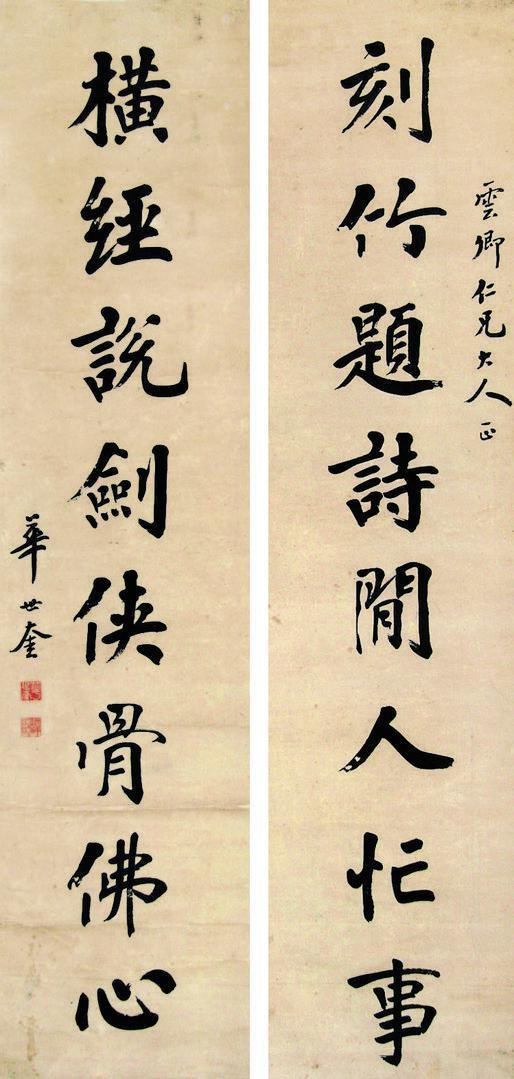 雲卿仁兄大人正
刻竹題詩閒人忙事
橫經說劍俠骨佛心
華世奎